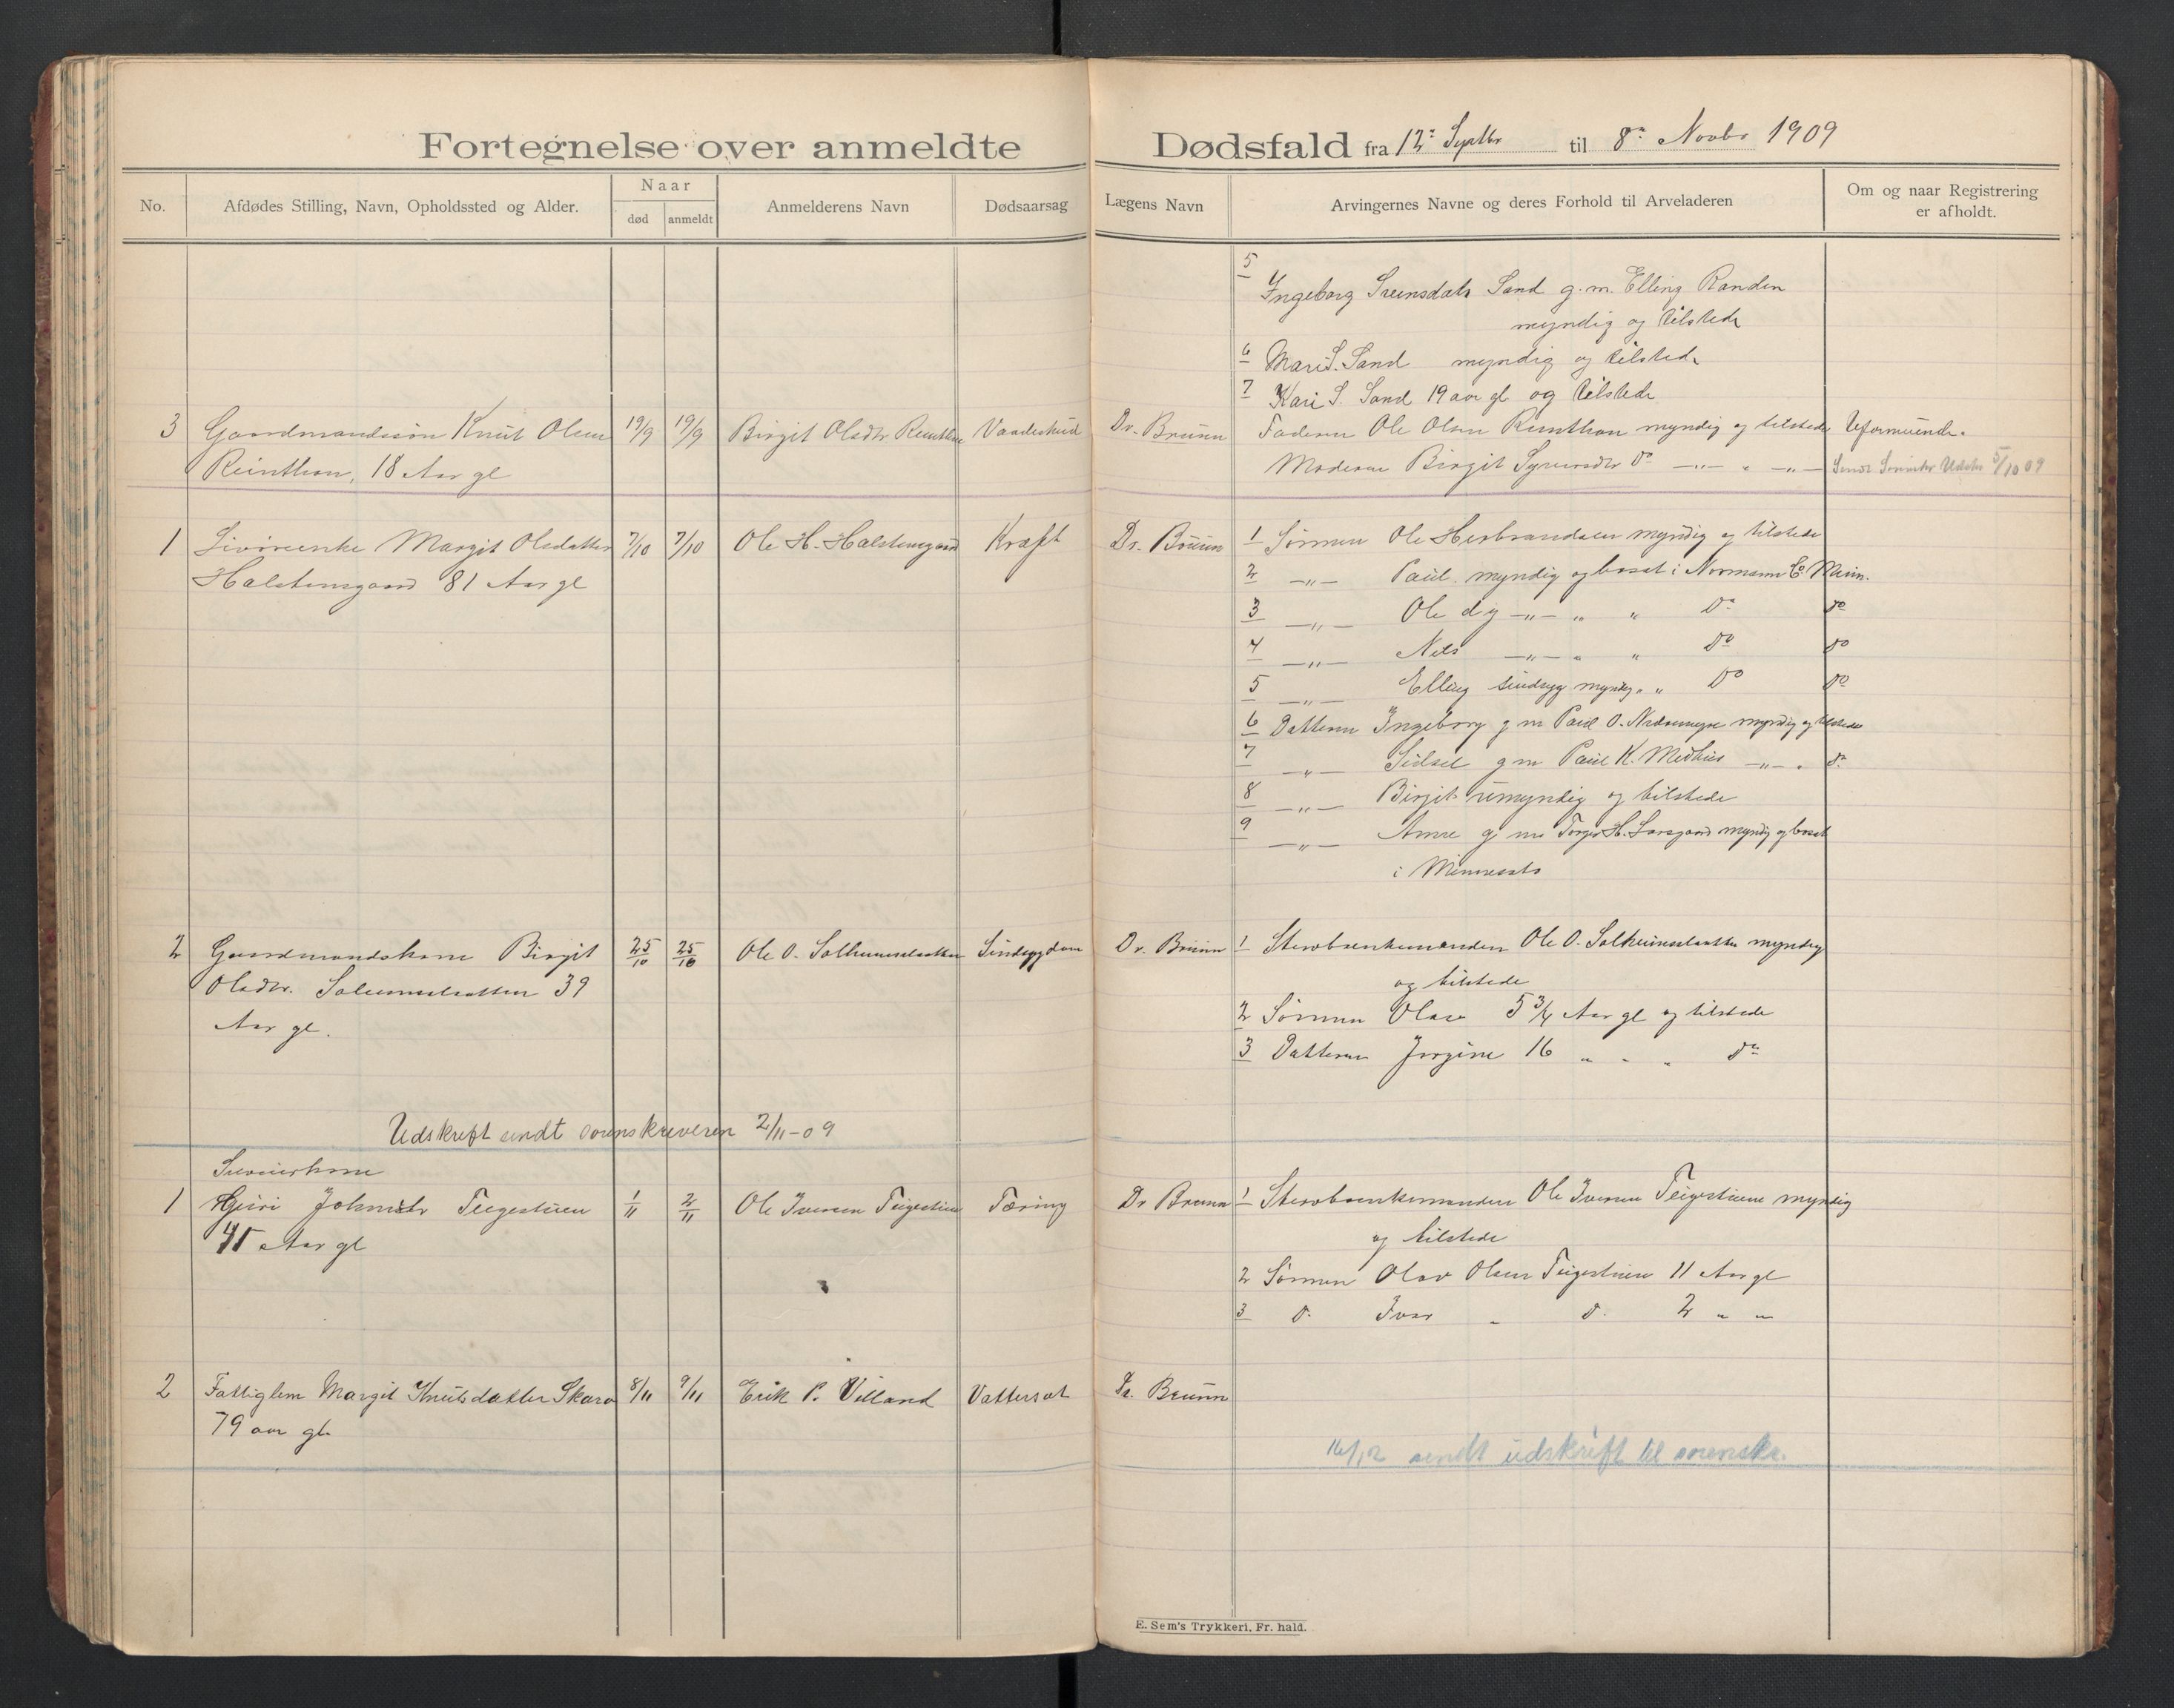 Fortegnelse over anmeldte Dødsfald fra 12te Septbr til 8de Novbr 1909
No.
Afdødes Stilling, Navn, Opholdssted og Alder.
Naar
død
anmeldt
Anmelderens Navn
Dødsaarsag
Lægens Navn
Arvingernes Navne og deres Forhold til Arveladeren
Om og naar Registrering
er afholdt.
5
Ingeborg Sveinsdatr Sand g.m. Elling Randen
myndig og tilstede
6 Mari S. Sand myndig og tilstede
7 Kari S. Sand 19 aar gl og tilstede
3 Gaardmandssøn Knut Olsen 19/9 19/9 Birgit Olsdtr Vandeskud Dr. Bruun Faderen Ole Olsen myndig og tilstede Uformuende.
18 Aar gl Moderen Birgit do 5/10 09
1 Livørenke Margit Olsdatter 7/10 7/10 Ole H. Halstensgaard Kræft Dr. Bruun 1 Sønnen Ole Herbrandsen myndig og tilstede
Halstensgaard 81 Aar gl 2 —„— Paul myndig og bosat i Norman Co Minn.
3 —„— Ole d.y —„— „ „ do do
4 —„— Nils —„— „ „ do do
5 —„— Elling sindsyg myndig „ „ do do
6 Datteren Ingeborg g m Paul O. myndig og tilstede
7 —„— Sidsel g m Paul K. Medhus —„— „ do
8 —„— Birgit umyndig og tilstede
9 —„— Anne g m Torger H. myndig og bosat
i Minnesota
2 Gaardmandskone Birgit 25/10 25/10 Ole O. Solheimslaatten Sindsygdom Dr. Bruun 1 Stervboenkemanden Ole O. Solheimslaatten myndig
Olsdtr. 39 og tilstede
Aar gl. 2 Sønnen Olav 5 3/4 Aar gl og tilstede
3 Datteren Jorgine 16 „ „ „ do
Udskrift sendt sorenskriveren 2/11-09
1 Guri Johnsdtr Teigestuen 1/11 2/11 Ole Iversen Teigestuen Tæring Dr Bruun 1 Stervboenkemanden Ole Iversen Teigestuen myndig
45 Aar gl og tilstede
2 Sønnen Olav Olsen Teigestuen 11 Aar gl
3 do. Ivar „ do. 2 „ „
2 Fattiglem Margit Knutsdatter Skaro 8/11 9/11 Erik P. Villand Vattersot Dr. Bruun
79 aar gl.
16/12 sendt udskrift til sorenskr.
E. Sem's Trykkeri, Fr. hald.